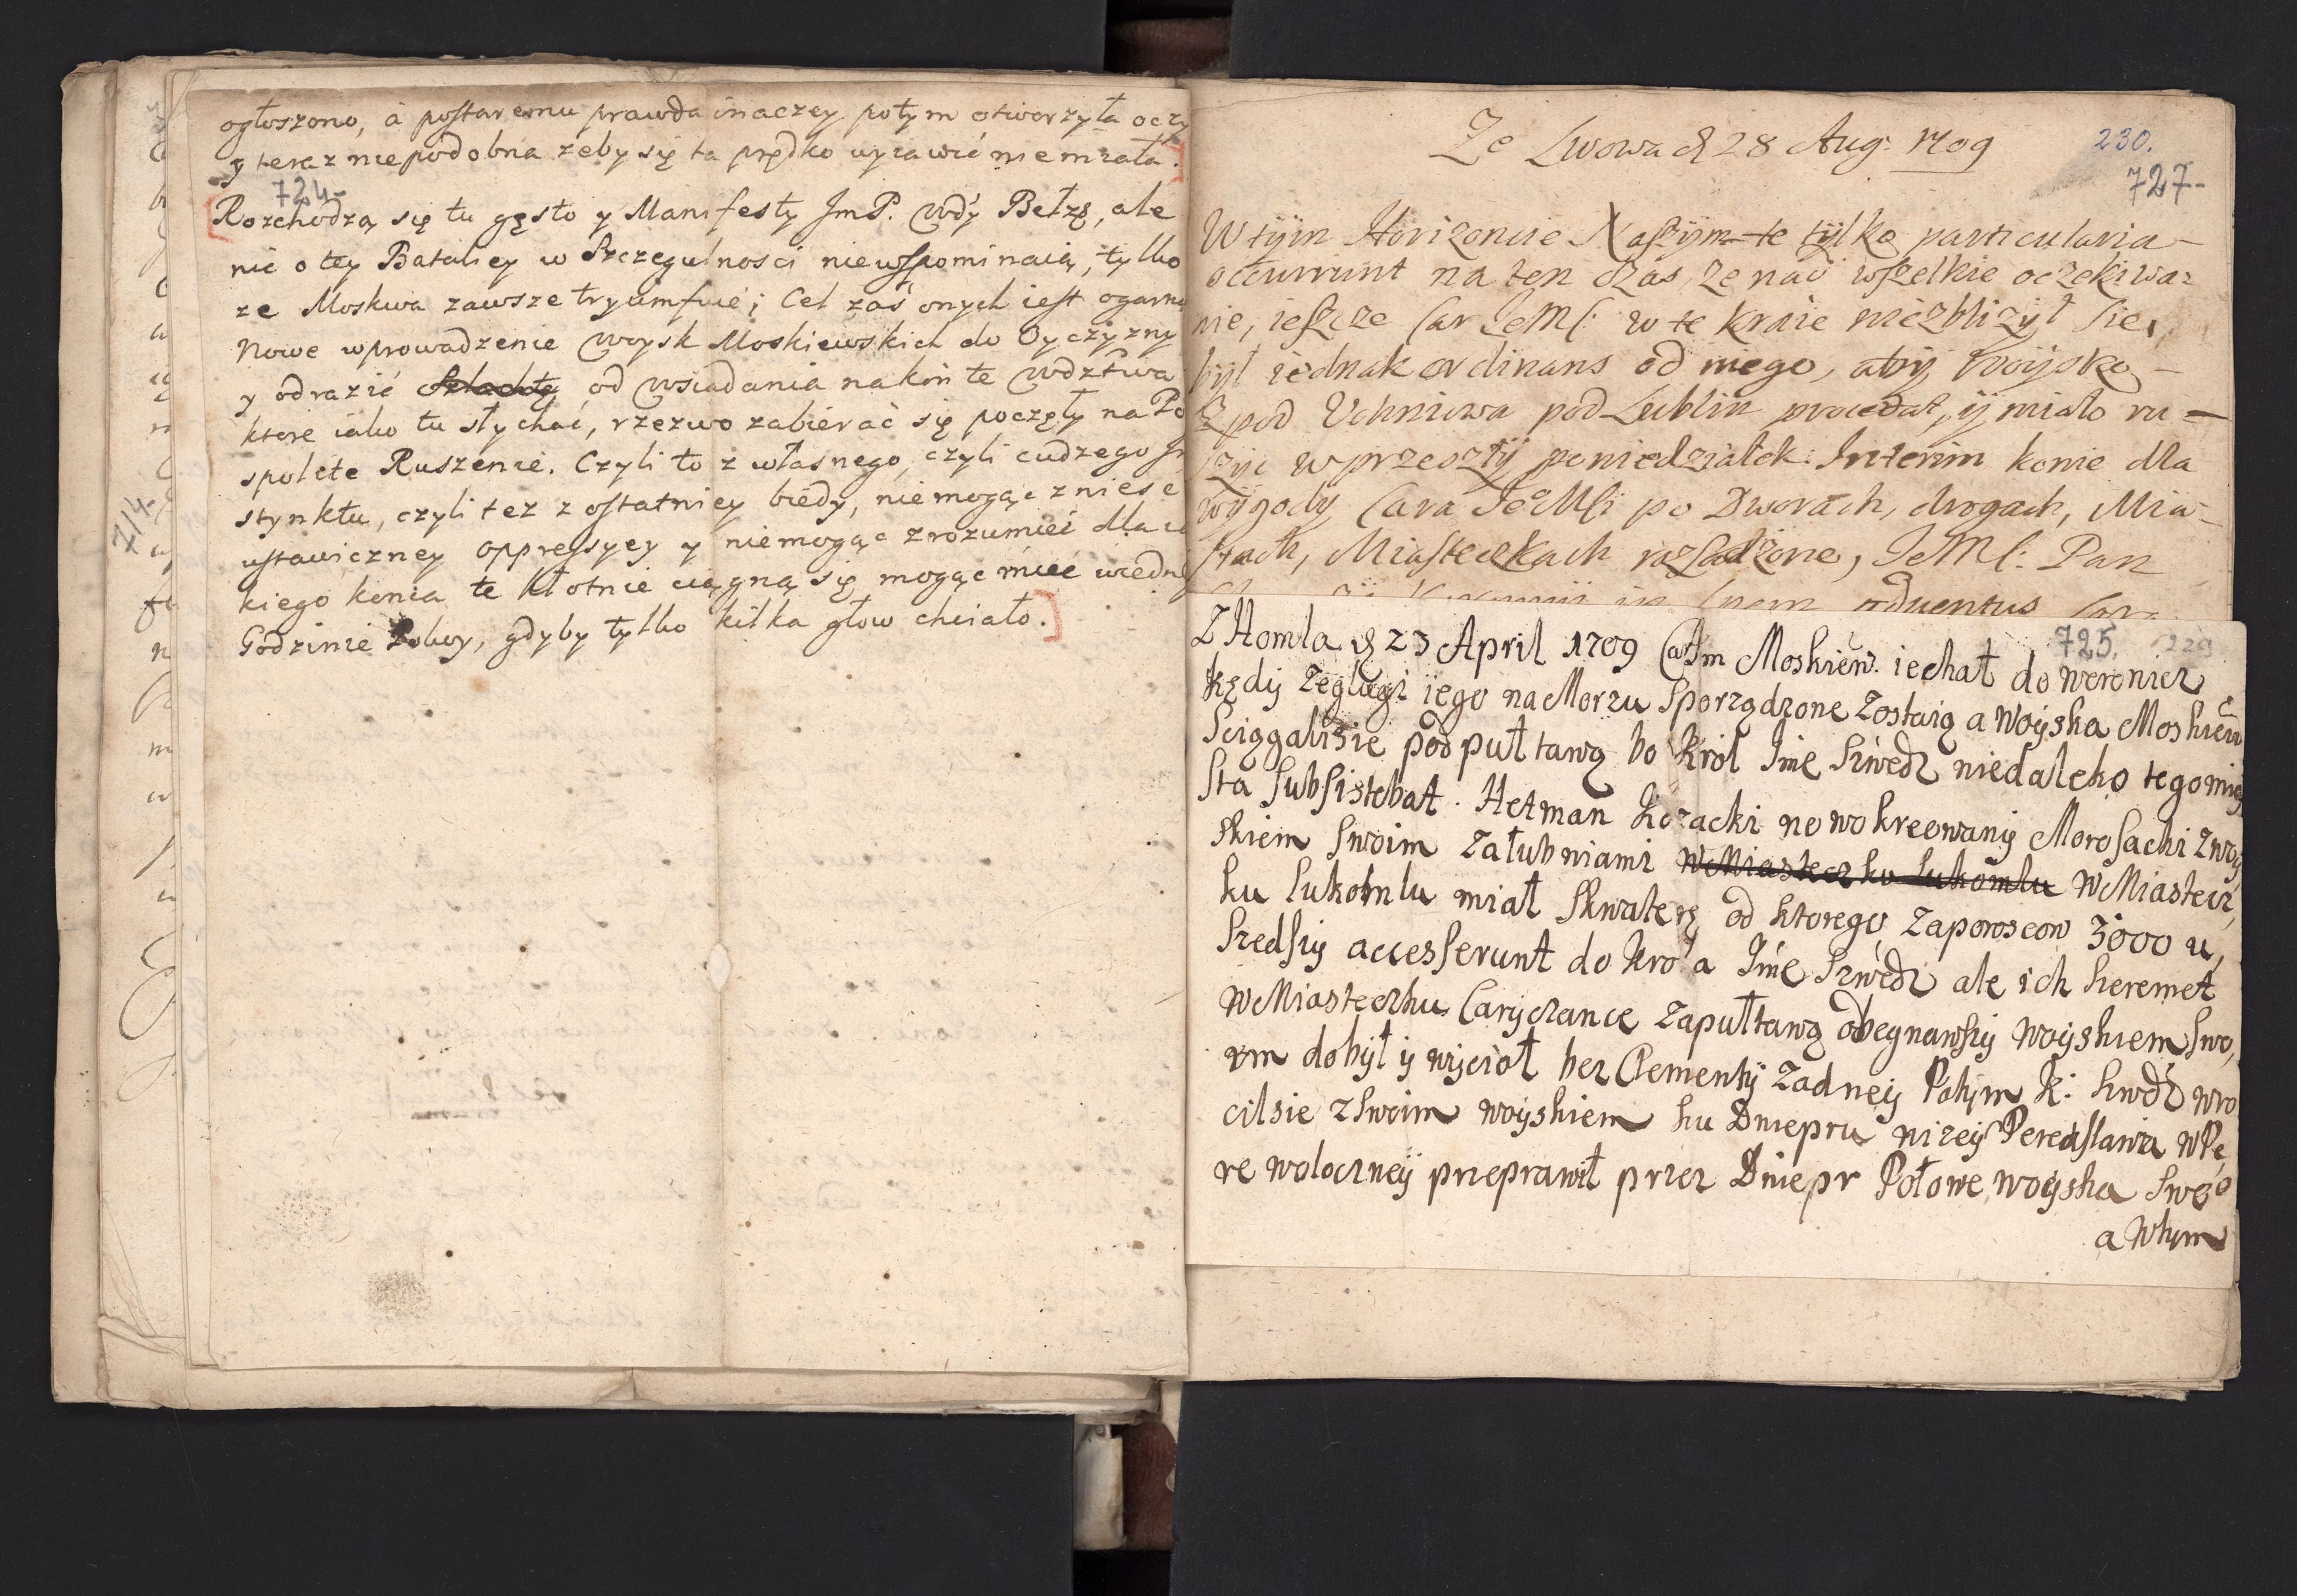 ogłoszono, à postaremu prawda inaczey potym otworzyła oczy
y teraz niepodobna żeby się ta prędko wyiawić niemiała.
724-
Rozchodzą się tu gęsto y Manifesty JmP. Wdy Bełzo, ale
nic o tey Bataliey w Szczegulnosci niewspominaią, tylko
ze Moskwa zawsze tryumfuie; Cel zaś onych iest
Nowe wprowadzenie Woysk Moskiewskich do Oyczyzny
y odrazić Szlachtę od wsiadania nakoń te Wdztwa
ktore iako tu słychać, rzezwo zabierać się poczęły na Po
spolite Ruszenie. Czyli to z własnego, czyli cudzego In
stynktu, czyli tez z ostatniey biedy, niemogąc zniesc
ustawiczney oppressyey y niemogąc zrozumieć dla ia
kiego konca te kłotnie ciągną się mogąc miec wiedn
Godzinie Pokoy, gdyby tylko kilka głow chciało.
714-
Ze Lwowa d 28 Aug: 1709
230.
727-
W tÿm Horizoncie Naszÿm te tÿlko particularia
occurrunt na ten czas, że nad wszelkie oczekiwa=
nie, ieszcze Car JeMs: w te kraie niezbliżÿł sie,
bÿł iednak ordinans od niego, abÿ woÿsko
z pod Uchniowa pod Lublin procedat, ÿ miało ru=
szÿc w przeszłÿ poniedziałek: Interim konie dla
wÿgodÿ Cara JeoMsi po Dworach, drogach, Mia-
stach, Miasteczkach rozsadzone, JeMs: Pan
adventus
Z Homla d 23 April 1709 Car Im Moskiew. iechał do weronicz
725.
229
kędy Zeglugi iego na Morzu Sporządzone Zostaią a Woyska Moskiew
Sciągali sie pod pułtawą bo Krol Ime Szwedz niedaleko tego miey
sta Subsistebat. Hetman Kozacki nowo kreowany Morosacki z woy
skiem Swoim Załubniami W Miasteczku Lukomlu W Miastecz,
ku Lukomlu miał Skwaterę od ktorego Zaporoscow 3000 u,
szedszy accesserunt do Krola Ime Szwedz ale ich Szeremet
W Miasteczku Caryczance Zapułtawą obegnawszy Woyskiem Swo,
im dobył y wycioł bez Clementy Zadney Potym K: Szwdz wro
cilsie z Swoim woyskiem ku Dniepru nizey Pereaslawia w Pe
re woloczney przeprawił przez Dniepr Połowe woyska Swego
a Wtym